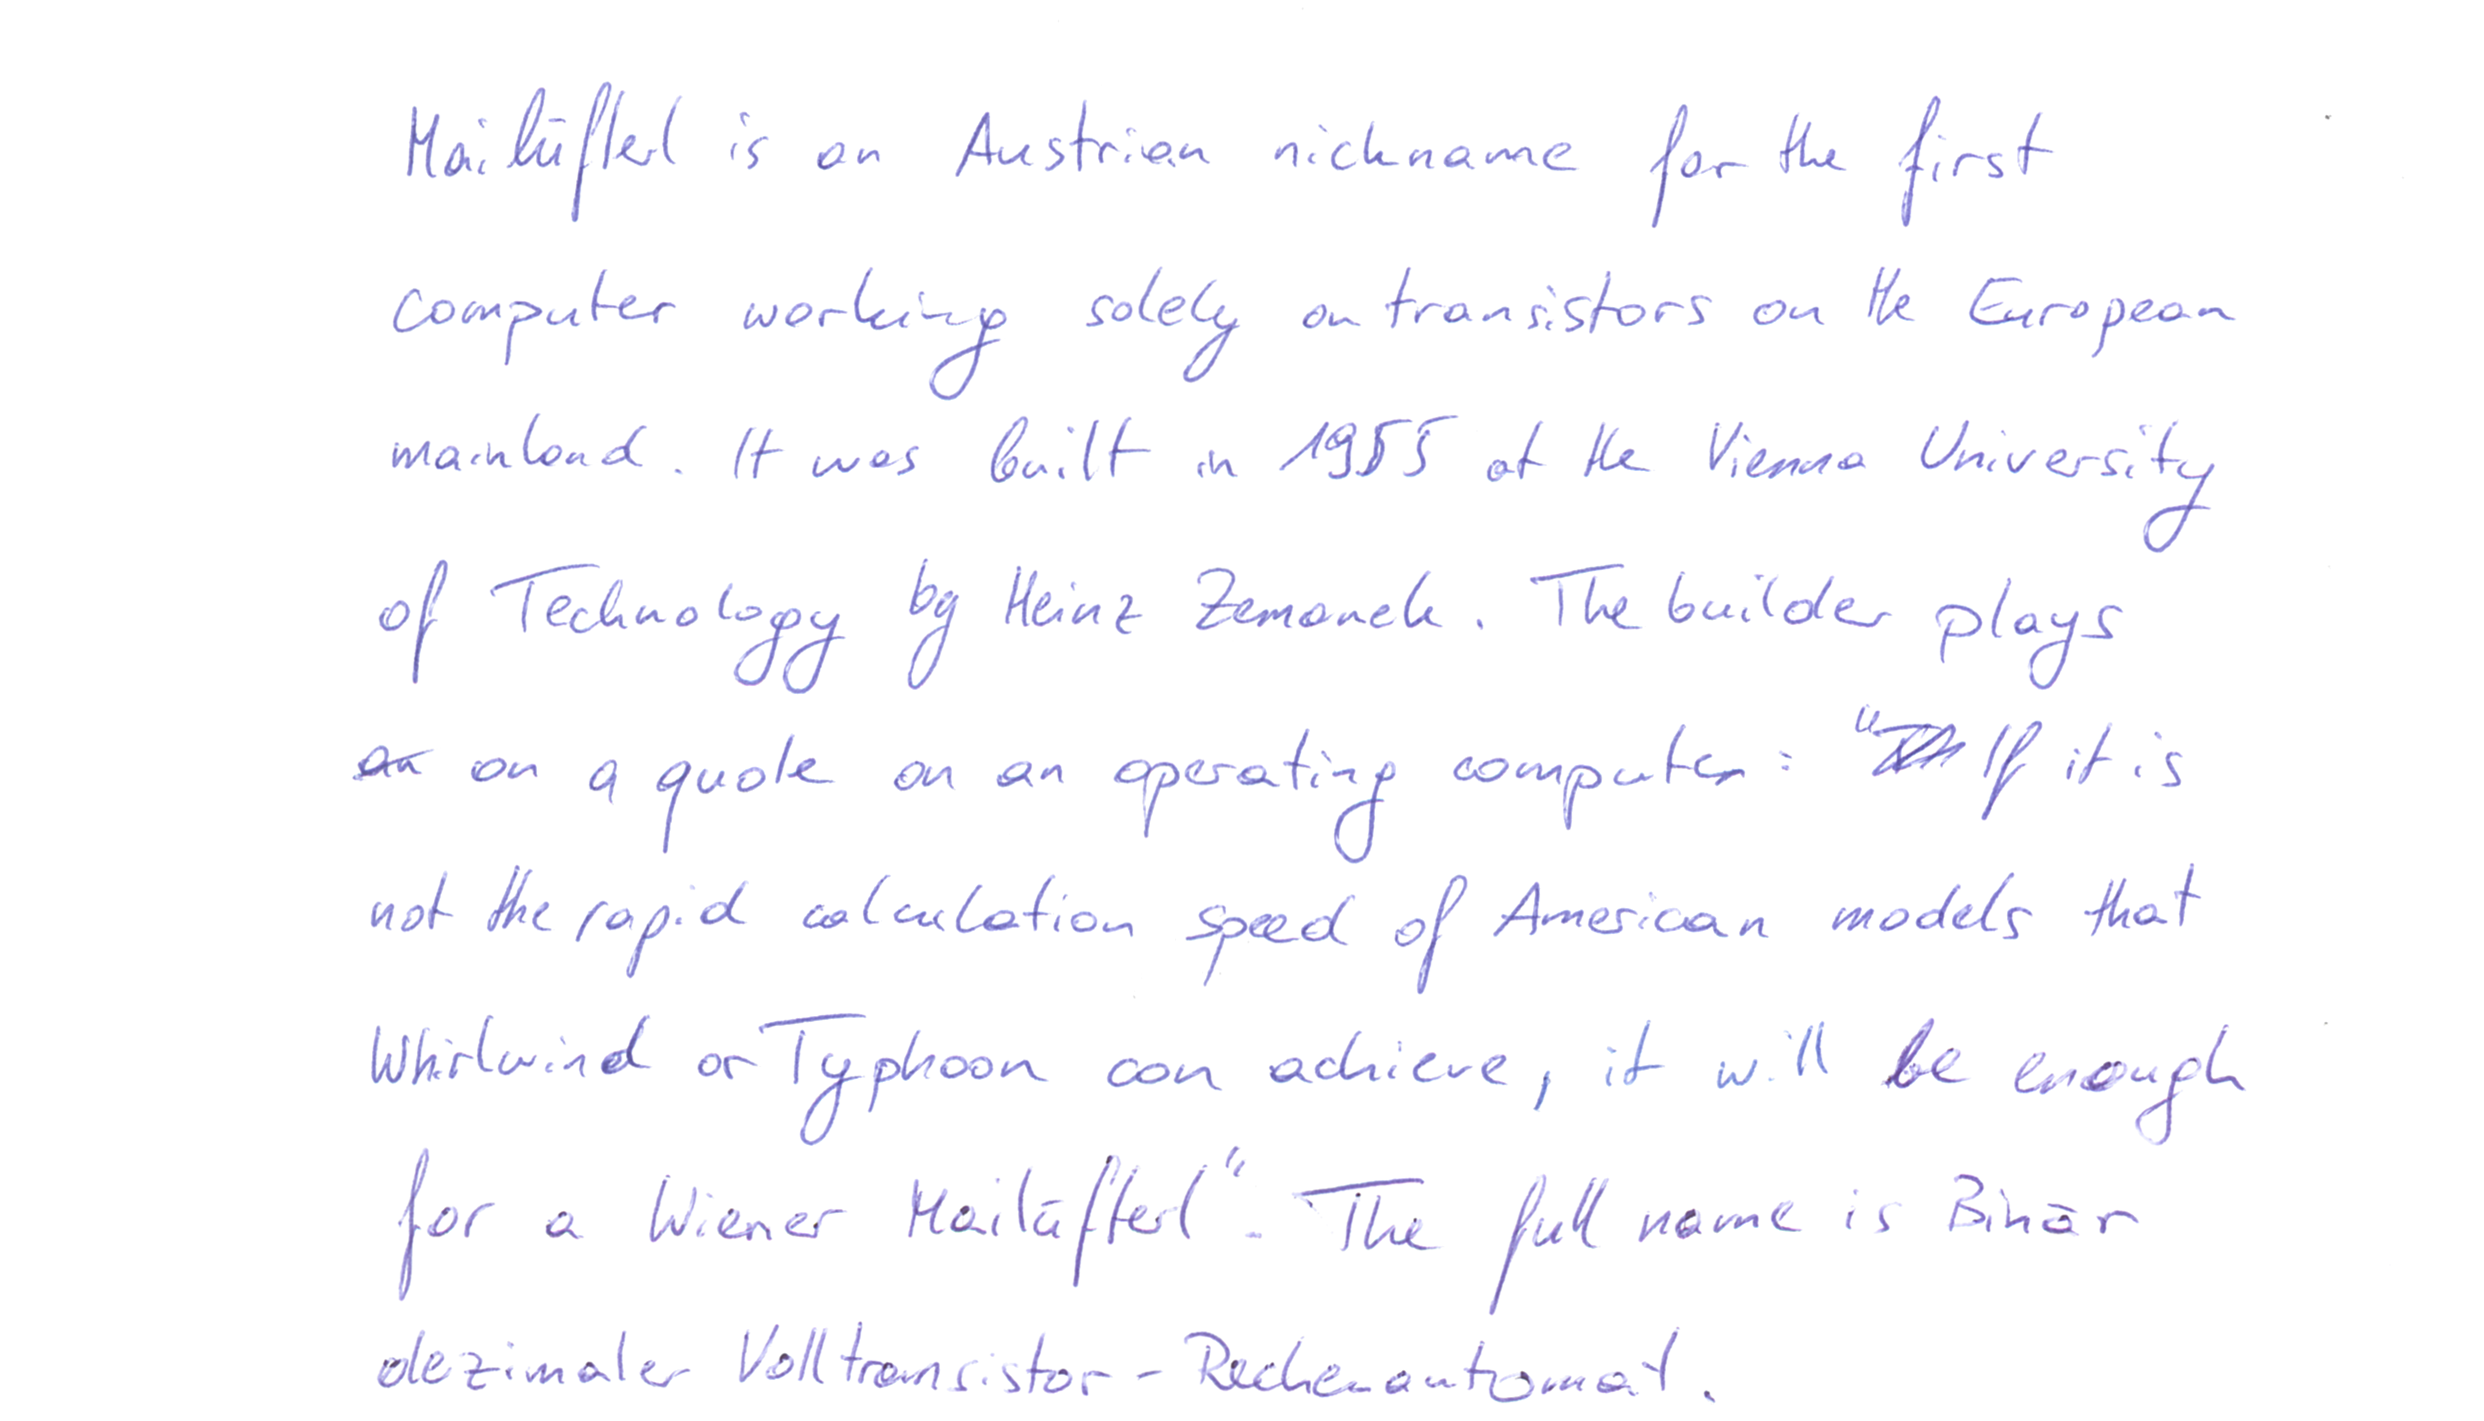 Mailüfterl is an Austrian nickname for the first
computer working solely on transistors on the European
mainland. It was built in 1955 at the Vienna University
of Technology by Heinz Zemanek. The builder plays
an on a quote on an operating computer: "If it is
not the rapid calculation speed of American models that
Whirlwind or Typhoon can achieve, it will be enough
for a Wiener Mailüfterl". The full name is Binär
dezimaler Volltransistor-Rechenautomat.